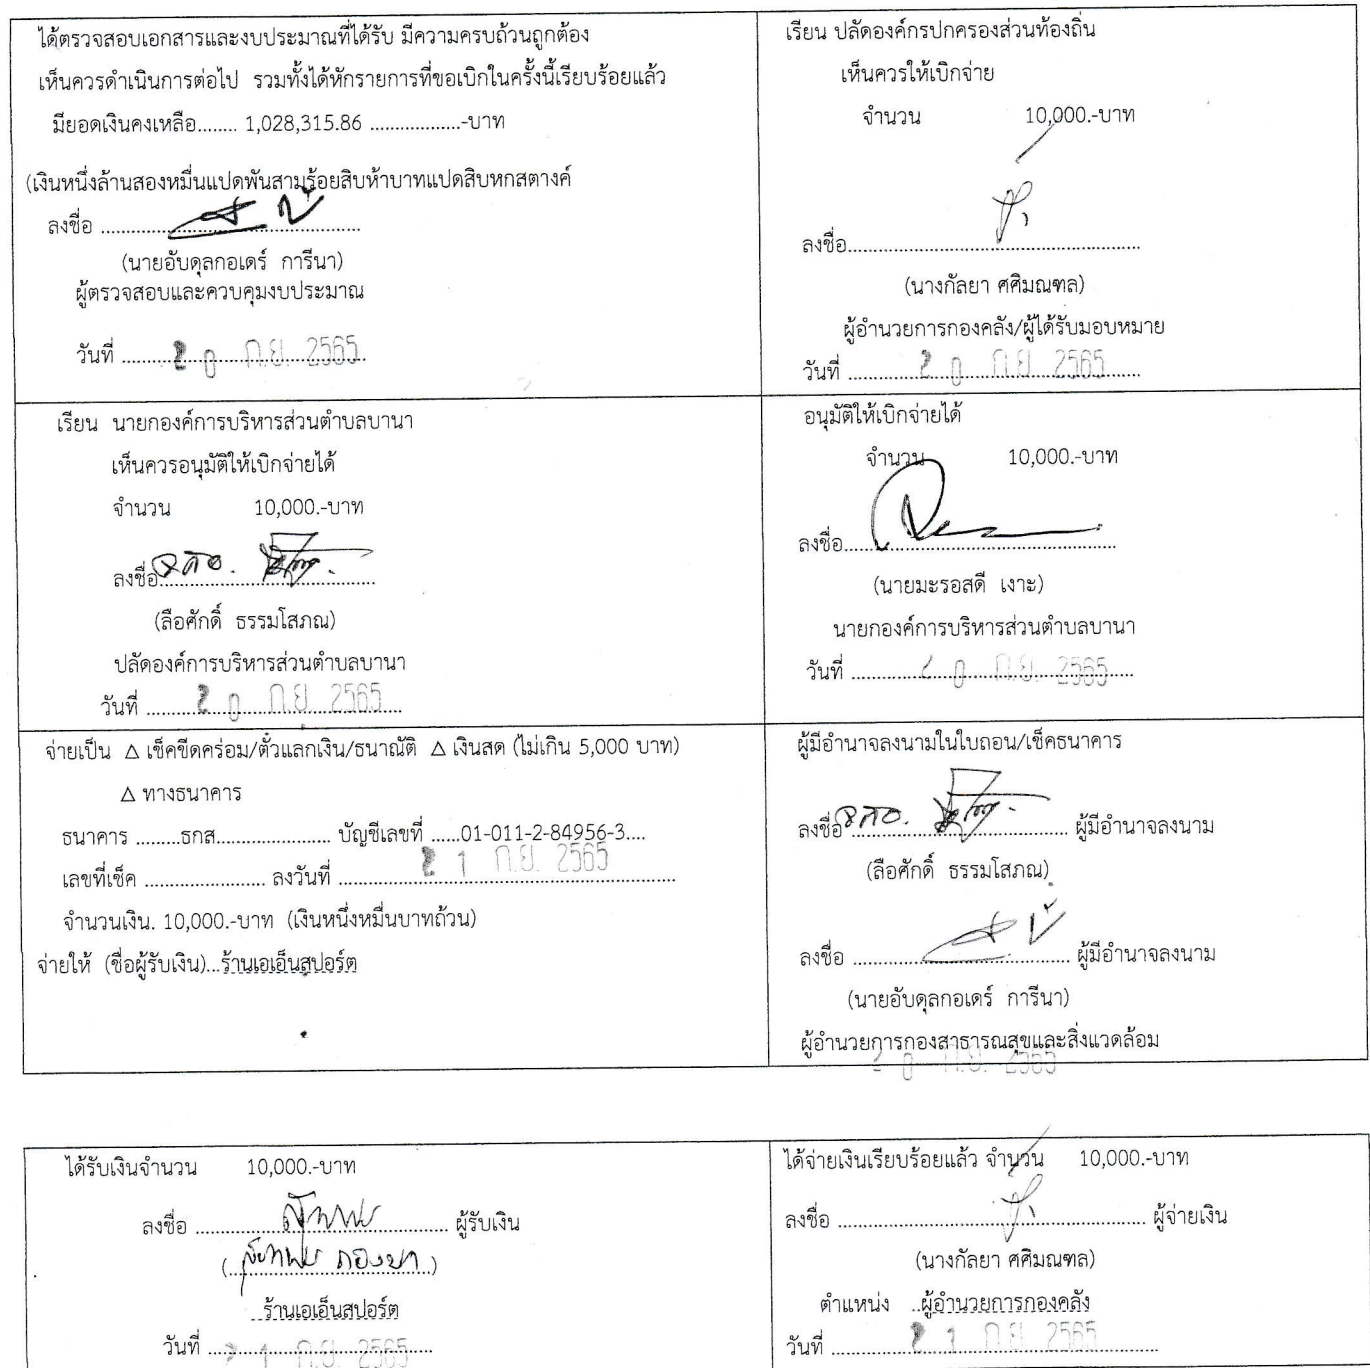 ได้ตรวจสอบเอกสารและงบประมาณที่ได้รับ มีความครบถ้วนถูกต้อง
เห็นควรดำเนินการต่อไป รวมทั้งได้หักรายการที่ขอเบิกในครั้งนี้เรียบร้อยแล้ว
มียอดเงินคงเหลือ........ 1,028,315.86 ..................-บาท
(เงินหนึ่งล้านสองหมื่นแปดพันสามร้อยสิบห้าบาทแปดสิบหกสตางค์
ลงชื่อ ................................................
(นายอับดุลกอเดร์ การีนา)
ผู้ตรวจสอบและควบคุมงบประมาณ
วันที่ 20 ก.ย. 2565
เรียน ปลัดองค์กรปกครองส่วนท้องถิ่น
เห็นควรให้เบิกจ่าย
จำนวน 10,000.-บาท
ลงชื่อ................................................
(นางกัลยา ศศิมณฑล)
ผู้อำนวยการกองคลัง/ผู้ได้รับมอบหมาย
วันที่ 20 ก.ย. 2565
เรียน นายกองค์การบริหารส่วนตำบลบานา
เห็นควรอนุมัติให้เบิกจ่ายได้
จำนวน 10,000.-บาท
ลงชื่อ................................................
(ลือศักดิ์ ธรรมโสภณ)
ปลัดองค์การบริหารส่วนตำบลบานา
วันที่ 20 ก.ย. 2565
อนุมัติให้เบิกจ่ายได้
จำนวน 10,000.-บาท
ลงชื่อ................................................
(นายมะรอสดี เงาะ)
นายกองค์การบริหารส่วนตำบลบานา
วันที่ 20 ก.ย. 2565
จ่ายเป็น △ เช็คขีดคร่อม/ตั๋วแลกเงิน/ธนาณัติ △ เงินสด (ไม่เกิน 5,000 บาท)
△ ทางธนาคาร
ธนาคาร .........ธกส....................... บัญชีเลขที่ ......01-011-2-84956-3....
เลขที่เช็ค ........................ ลงวันที่ 21 ก.ย. 2565
จำนวนเงิน. 10,000.-บาท (เงินหนึ่งหมื่นบาทถ้วน)
จ่ายให้ (ชื่อผู้รับเงิน)...ร้านเอเอ็นสปอร์ต
ผู้มีอำนาจลงนามในใบถอน/เช็คธนาคาร
ลงชื่อ................................................ ผู้มีอำนาจลงนาม
(ลือศักดิ์ ธรรมโสภณ)
ลงชื่อ ................................................ ผู้มีอำนาจลงนาม
(นายอับดุลกอเดร์ การีนา)
ผู้อำนวยการกองสาธารณสุขและสิ่งแวดล้อม
20 ก.ย. 2565
ได้รับเงินจำนวน 10,000.-บาท
ลงชื่อ ................................................ ผู้รับเงิน
..ร้านเอเอ็นสปอร์ต
วันที่ 21 ก.ย. 2565
ได้จ่ายเงินเรียบร้อยแล้ว จำนวน 10,000.-บาท
ลงชื่อ ................................................ ผู้จ่ายเงิน
(นางกัลยา ศศิมณฑล)
ตำแหน่ง ..ผู้อำนวยการกองคลัง
วันที่ 21 ก.ย. 2565